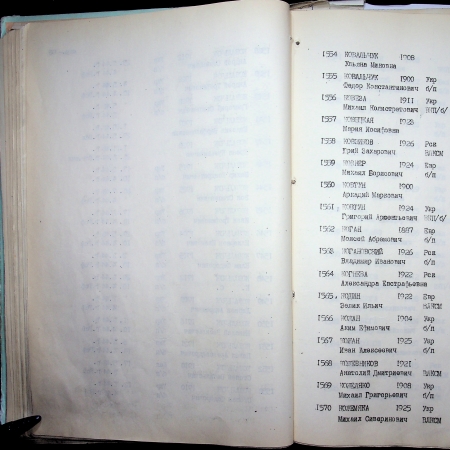 1554 КОВАЛЬЧУК 1908
Ульяна Мановна
1555 КОВАЛЬЧУК 1900 Укр
Федор Константинович б/п
1556 1911 Укр
Михаил Калистратович
1557 1923
Мария Иосифовна
1558 1926 Роя
Юрий Захарович ВЛКСМ
1559 1924 Евр
Михаил Борисович б/п
1560 КОВТУН 1900
Аркадий Маркович
1561 КОВТУН 1924 Укр
Григорий Арсентьевич
1562 КОГАН 1887 Евр
Моисей Абрамович б/п
1563 КОГАНОВСКИЙ 1926 Роя
Владимир Иванович б/п
1564 КОГНЕВА 1922 Роя
Александра Евстрафьевна
1565 1922 Евр
Ильич ВЛКСМ
1566 1904 Укр
Аким Ефимович б/п
1567 1925 Укр
Иван Алексеевич б/п
1568 КОЖЕВНИКОВ 1921
Анатолий Дмитриевич ВЛКСМ
1569 1908 Укр
Михаил Григорьевич б/п
1570 1925 Укр
Михаил Северинович ВЛКСМ